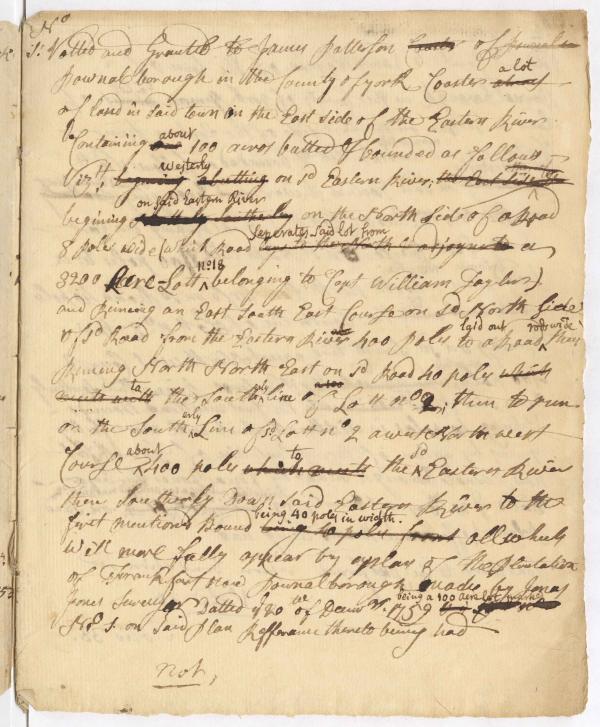 No
1: Voted and Granted to James Patterson of
Pownalborough in the County of York Coaster a lot
of land in said town on the East side of the Eastern River
Containing about 100 acres butted & bounded as follows
Vizt. westerly on sd Eastern River,
begining on said Eastern River on the North side of a Road
8 poles wide (which Road seperates said lot from a
3200 Acre Lott no 18 belonging to Capt William Taylor)
and Runing an East South East Course on sd North side
of sd Road from the Eastern River 400 poles to a Road laid out rods wide then
Runing North North East on sd Road 40 poles
to the Southerly line of Lott no. 2, then to run
on the Southerly Line of sd Lott no 2 a west North west
Course about 400 poles to the sd Eastern River
then Southerly Down said Eastern River to the
first mentioned Bound being 40 poles in width. all which
will more fully appear by a plan of the Plantation
of Frankfort now Pownalborough made by Jonas
Jones Surveyor Datted ye 30th of Decemr. 1759 being a 100 acre lot marked
No 1. on said plan Refferance thereto being had
not,